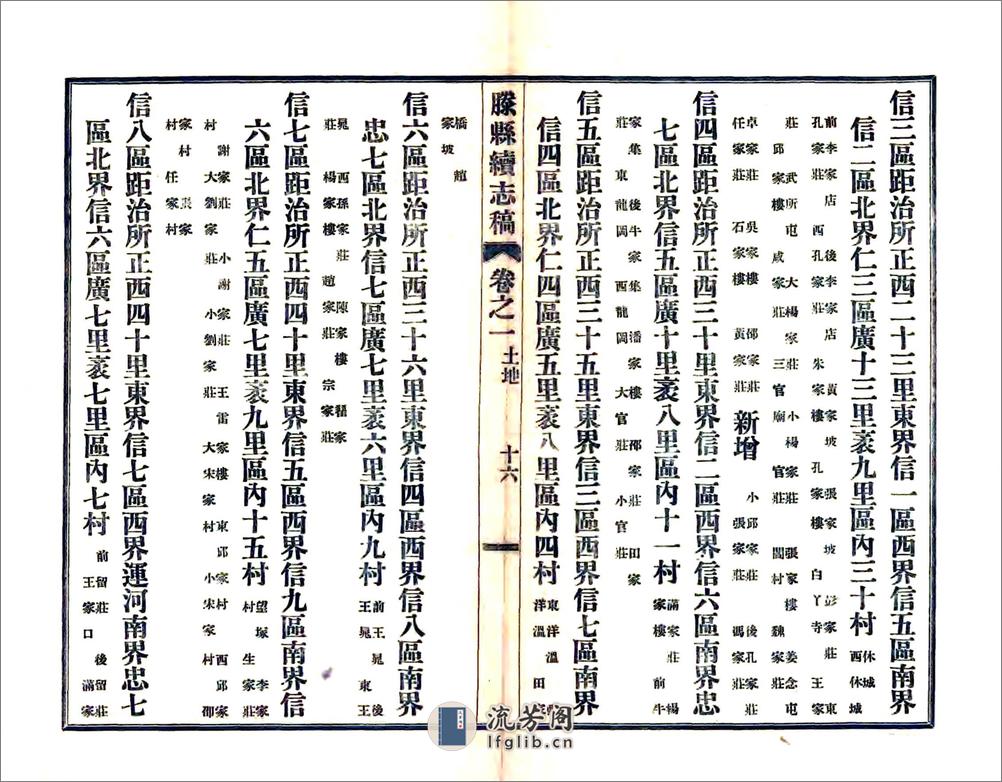 信三區距治所正西二十三里東界信一區西界信五區南界
信二區北界仁三區廣十三里袤九里區內三十村
休城
西休城
前李家店 後李家店 黃家坡 張家坡 彭家莊 東
孔家莊 西孔家莊 朱家樓 孔家樓 白丫寺 王家
莊 武所屯 大楊家莊 小楊家莊 張家樓 姜念屯
邱家樓 咸家莊 三官廟 官莊 閻村 魏家莊
卓家莊 吳家樓 邵家莊
任家莊 石家樓 黃家莊
新增
小邱家莊 後孔家莊
張家莊 馮家莊
信四區距治所正西三十里東界信二區西界信六區南界忠
七區北界信五區廣十里袤八里區內十一村
滿家莊 楊
家樓 前牛
家集 後牛家集 潘家樓 邵家莊 田家
莊 東龍岡 西龍岡 大官莊 小官莊
信五區距治所正西三十五里東界信三區西界信七區南界
信四區北界仁四區廣五里袤八里區內四村
東洋溫
洋溫 田家
滕縣續志稿 卷之一 土地 十六
橋 趙
家坡
信六區距治所正西三十六里東界信四區西界信八區南界
忠七區北界信七區廣七里袤六里區內九村
前王晁 後
王晁 東王
晁 西孫家莊 陳家樓 程家
莊 楊家樓 趙家莊 宗家莊
信七區距治所正西四十里東界信五區西界信九區南界信
六區北界仁五區廣七里袤九里區內十五村
望塚 李家
村 生家莊
謝家莊 小謝家莊 王雷家樓 東邱家村 西邱家
村 大劉家莊 小劉家莊 大宋家村 小宋家村 邵
家村 裴家
村 任家村
信八區距治所正西四十里東界信七區西界運河南界忠七
區北界信六區廣七里袤七里區內七村
前留莊 後留莊
王家口 滿家
流芳阁
lfglib.cn